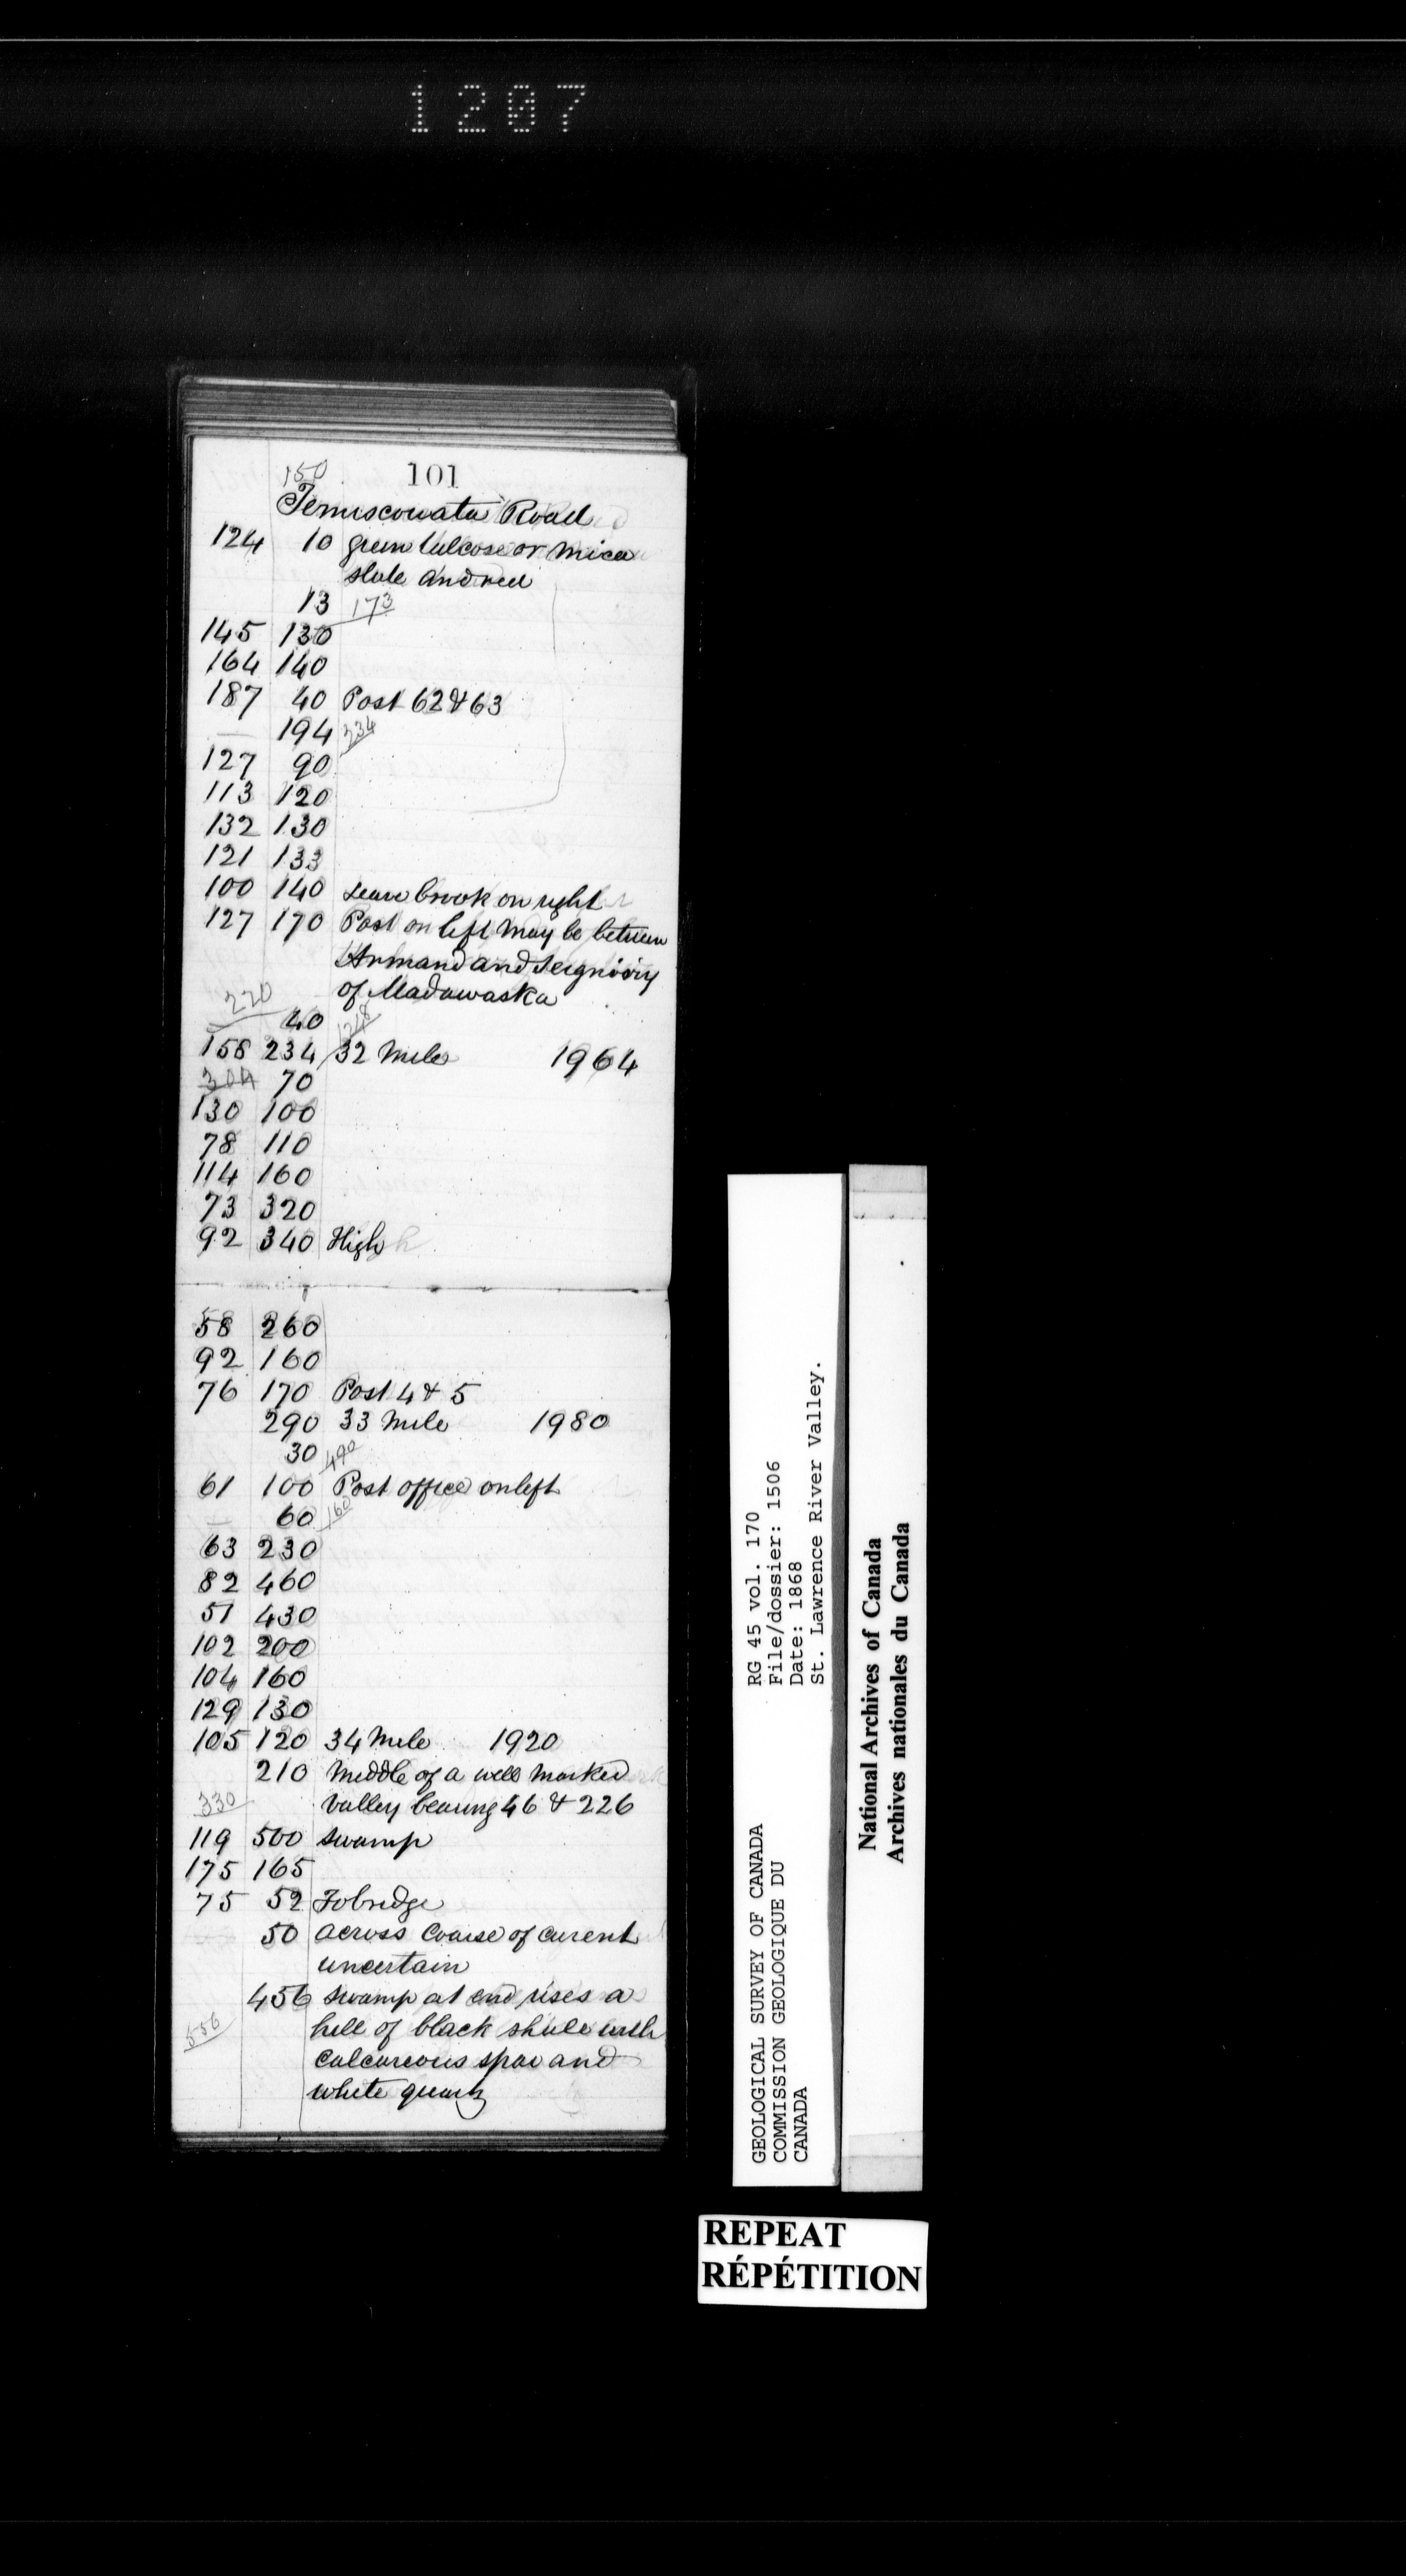 1207
150 101
Temiscouata Road
124 10 green talcose or mica
slate and red
13 173
145 130
164 140
187 40 Post 62 & 63
194 234
127 90
113 120
132 130
121 133
100 140 Leave brook on right
127 170 Post on left may be between
Armand and Seigniory
of Madawaska
220
40
158 234 32 Mile 1964
304 70
130 100
78 110
114 160
73 320
92 340 High
58 260
92 160
76 170 Post 4 & 5
290 33 Mile 1980
30 490
61 100 Post office on left
60 160
63 230
82 460
51 430
102 200
104 160
129 130
105 120 34 Mile 1920
210 Middle of a well marked
330 valley bearing 46 & 226
119 500 swamp
175 165
75 52 To bridge
50 across Coarse of curent
uncertain
456 swamp at end rises a
556 hill of black shale with
calcareous spar and
white quartz
GEOLOGICAL SURVEY OF CANADA
COMMISSION GEOLOGIQUE DU
CANADA
RG 45 vol. 170
File/dossier: 1506
Date: 1868
St. Lawrence River Valley.
National Archives of Canada
Archives nationales du Canada
REPEAT
RÉPÉTITION